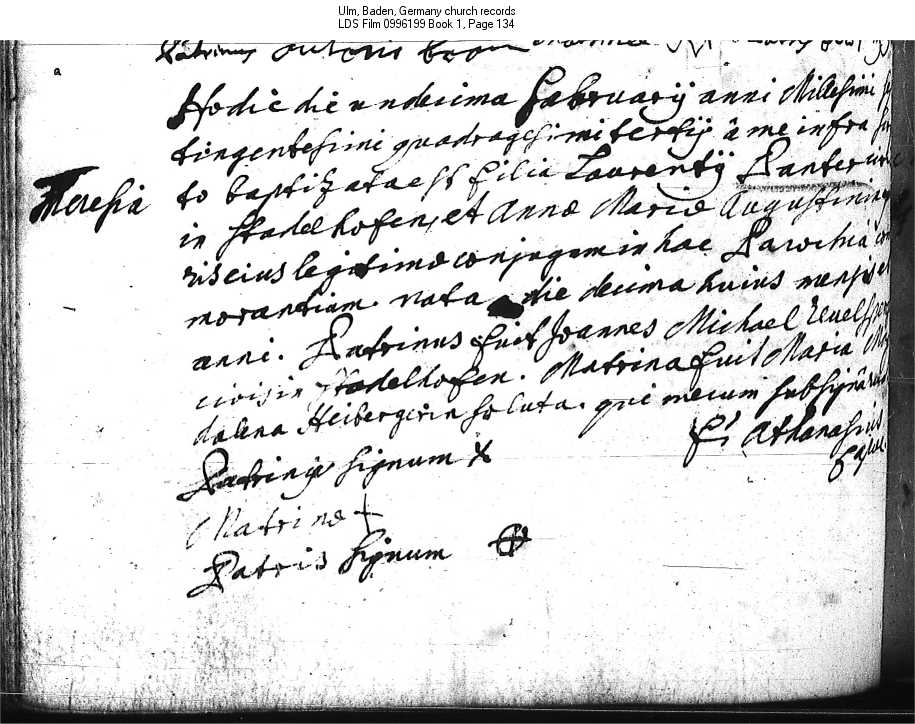 Ulm, Baden, Germany church records
LDS Film 0996199 Book 1, Page 134
Patrinus
a
Hodie die undecima Februarij anni Millesimi
tingentesimi quadragesimi tertij â me infra
Theresia
to baptizata est filia Laurentij Panter
in Stadelhofen, et Annæ Mariæ Augustinin
ris eius legitimæ conjugum in hac Parochiâ
morantium. nata die decima huius mensis
anni. Patrinus fuit Joannes Michael
civis in Stadelhofen. Matrina fuit Maria
dalena Heibergerin soluta. qui mecum
Fr Athanasius
Patrini signum X
Matrinæ +
Patris signum